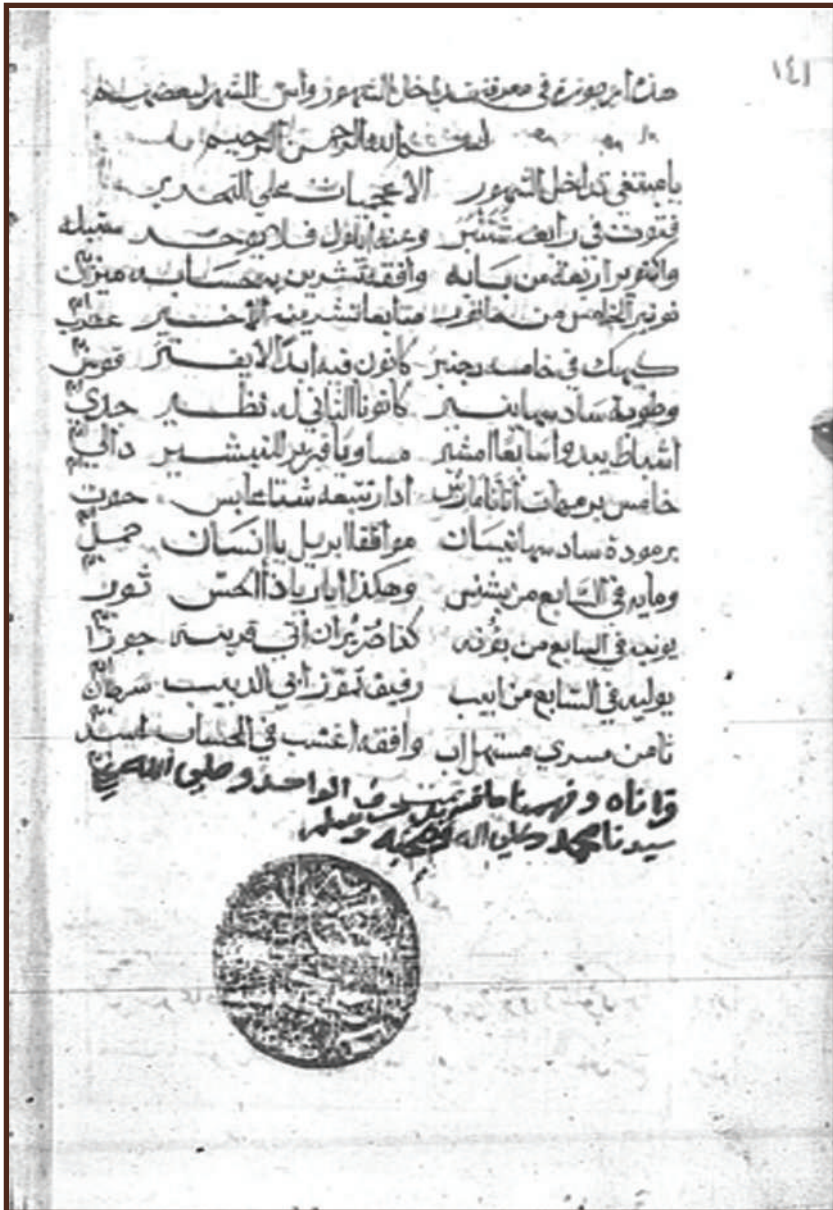 ١٤١
هذه أرجوزة في معرفة تداخل الشهور رأس الشهر لبعضهم
بسم الله الرحمن الرحيم
يا مبتغي تداخل الشهور الاعجميات على التحرير
فتوت في رابعه شتنبر وعنه ايلول فلا يوخر سنبله
واكتوبر اربعة من بابه وافقه تشرين في حسابه ميزان
نونبر الخامس من هاتور متابعا تشرينه الأخير عقرب
كيهك في خامسه دجنبر كانون فيه ابدا لا يفتر قوس
وطوبة سادسها ينير كانونا الثاني له نظير جدي
اشباط يبدو سابعا امشير مساويا فبرير للتبشير دالي
خامس برمهات أتانا مارس ادار تتبعه شتا عابس حوت
برمودة سادسها نيسان موافقا ابريل يا انسان حمل
ومايه في السابع من بشنس وهكذا ايار يا ذا الحس ثور
يونيه في السابع من بؤنه كذا حزيران أتى قرينه جوزا
يوليه في السابع من ابيب رفيقه تموز أتى الدبيب سرطان
ثامن مسري مستهل اب وافقه اغشت في الحساب اسد
قراناه وفهمنا الواحد وصلى الله على
سيدنا محمد وعلى اله وصحبه وسلم